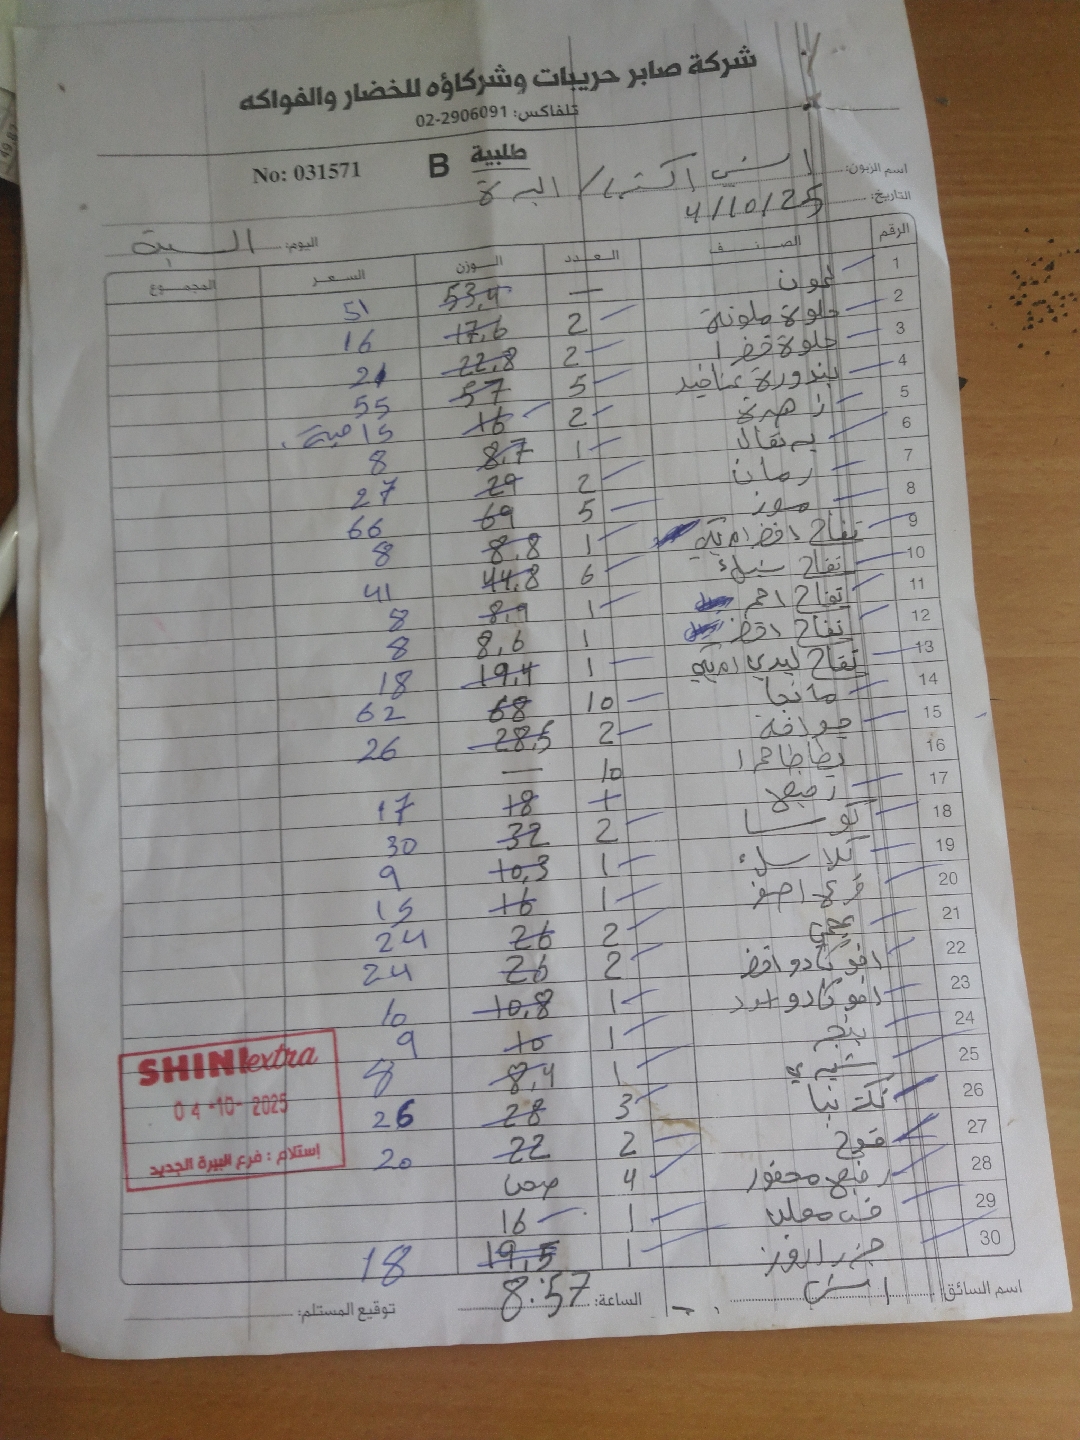 شركة صابر حريبات وشركاؤه للخضار والفواكه
تلفاكس: 02-2906091
طلبية B No: 031571
اسم الزبون: اكسترا / البيرة
التاريخ: 4/10/25
اليوم: السبت
الرقم الصنف العدد الوزن السعر المجموع
1 ليمون — 53,4 51
2 حلوة ملونة 2 17,6 16
3 حلوة خضرا 2 22,8 21
4 بندورة عناقيد 5 57 55
5 زهرة 2 16 15 حبة
6 برتقال 1 8,7 8
7 رمان 2 29 27
8 موز 5 69 66
9 تفاح اخضر 1 8,8 8
10 تفاح 6 44,8 41
11 تفاح احمر 1 8,9 8
12 تفاح اخضر 1 8,6 8
13 تفاح ليدي 1 19,4 18
14 مانجا 10 68 62
15 جوافة 2 28,5 26
16 بطاطا حمرا 10 —
17 18 17
18 كوسا 2 32 30
19 1 10,3 9
20 اصفر 1 16 15
21 2 26 24
22 افوكادو اخضر 2 26 24
23 افوكادو اسود 1 10,8 10
24 1 10 9
25 1 8,4 8
26 نكتارينا 3 28 26
27 خوخ 2 22 20
28 4
29 1 16
30 جزر 1 19,5 18
اسم السائق:
الساعة: 8:57
توقيع المستلم:
SHINI extra
04-10-2025
إستلام: فرع البيرة الجديد